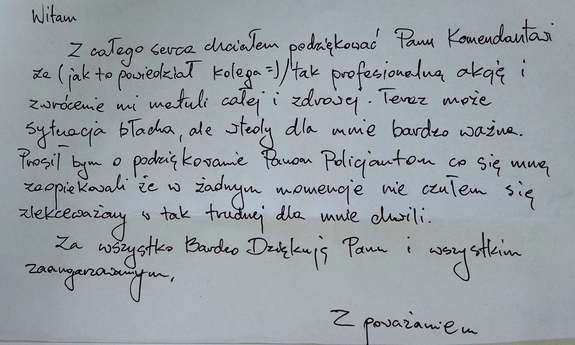 Witam
Z całego serca chciałem podziękować Panu Komendantowi
za (jak to powiedział kolega =) / tak profesjonalną akcję i
zwrócenie mi matuli całej i zdrowej. Teraz może
sytuacja błacha, ale wtedy dla mnie bardzo ważna.
Prosił bym o podziękowanie Panom Policjantom co się mną
zaopiekowali że w żadnym momencie nie czułem się
zlekceważony w tak trudnej dla mnie chwili.
Za wszystko Bardzo Dziękuję Panu i wszystkim
zaangarzowanym.
Z poważaniem